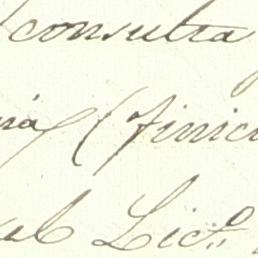 consulta
ria (finic
al Lic.º